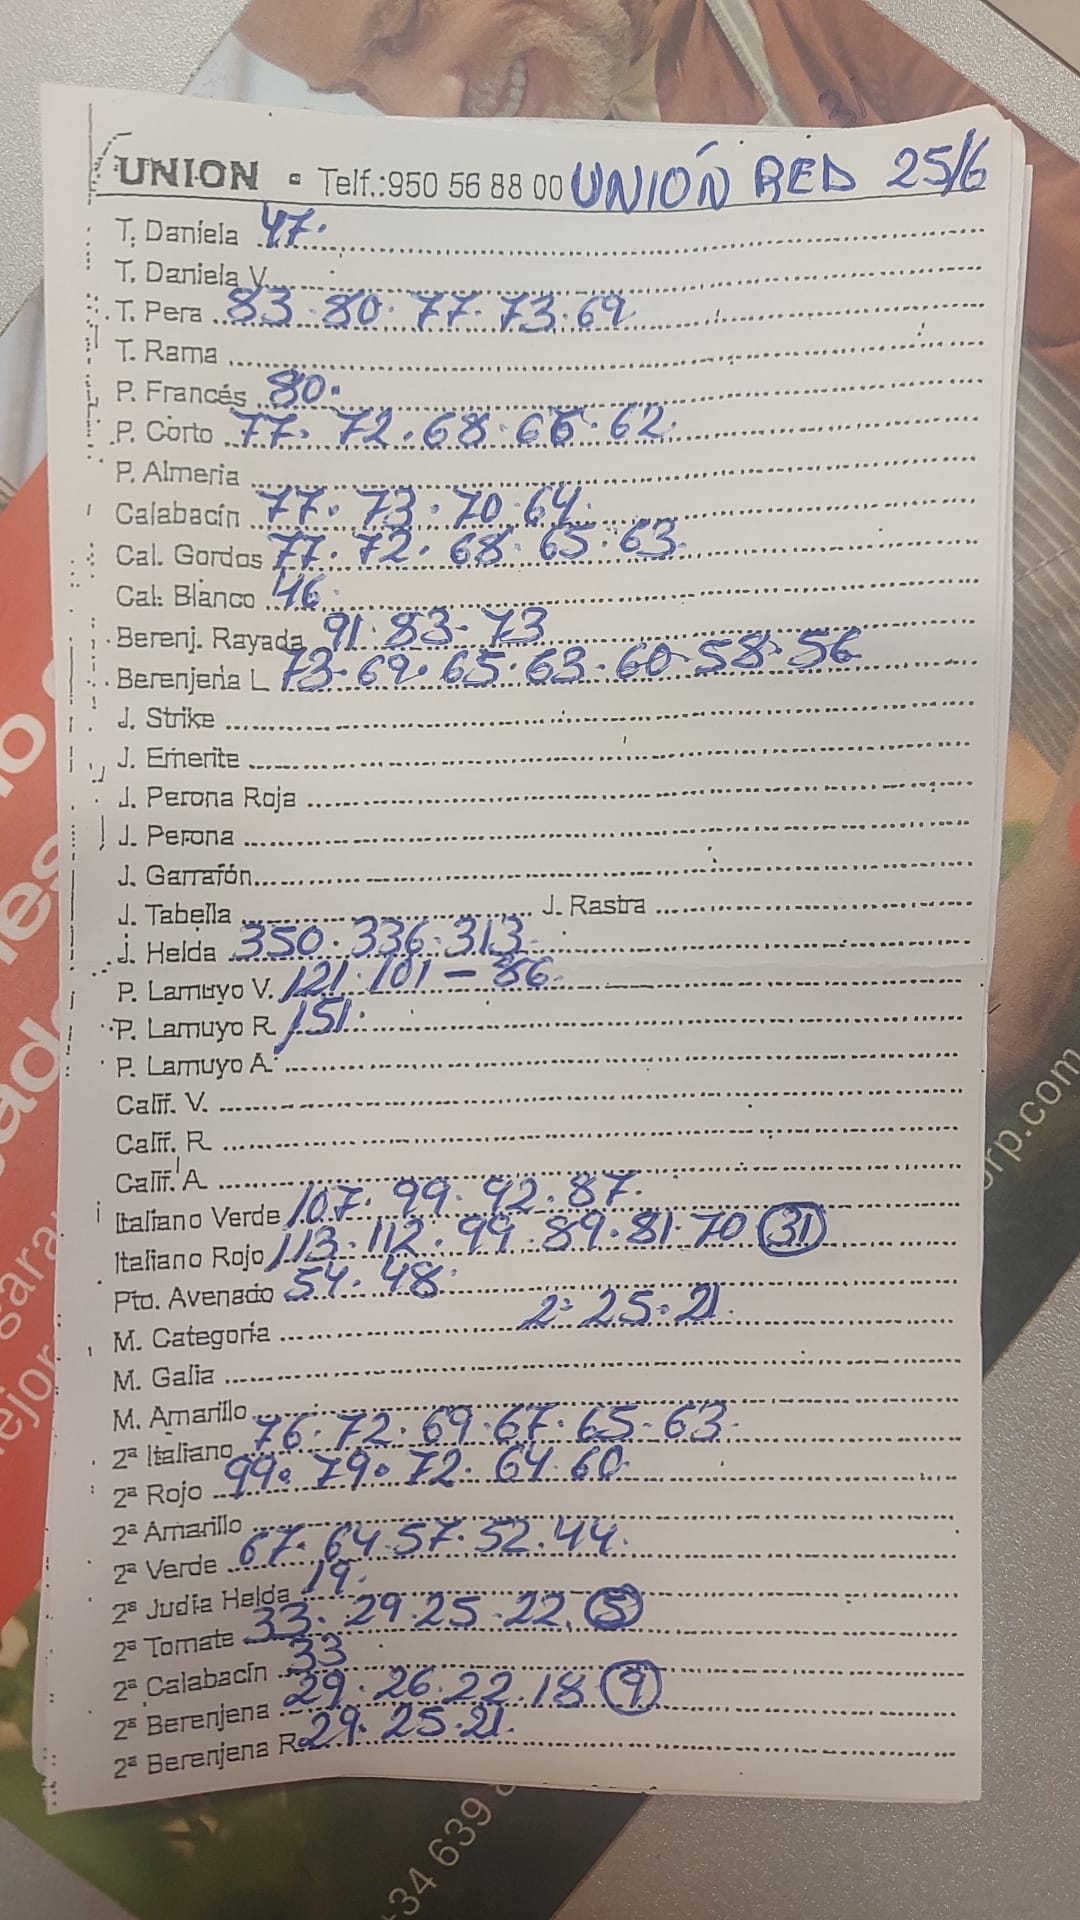 UNION - Telf.:950 56 88 00 UNIÓN RED 25/6
T. Daniela 47.
T. Daniela V
T. Pera 83.80.77.73.69
T. Rama
P. Francés 80.
P. Corto 77.72.68.66.62.
P. Almeria
Calabacín 77.73.70.64.
Cal. Gordos 77.72.68.65.63.
Cal. Blanco 46.
Berenj. Rayada 91.83.73
Berenjena L 73.69.65.63.60.58.56
J. Strike
J. Emerite
J. Perona Roja
J. Perona
J. Garrafón
J. Tabella J. Rastra
J. Helda 350.336.313.
P. Lamuyo V. 121.101-86.
P. Lamuyo R 151.
P. Lamuyo A.
Calif. V.
Calif. R
Calif. A
Italiano Verde 107.99.92.87.
Italiano Rojo 113.112.99.89.81.70 31
Pto. Avenado 54.48.
M. Categoría 2ª 25.21.
M. Galia
M. Amarillo
2ª Italiano 76.72.69.67.65.63.
2ª Rojo 99.79.72.64.60.
2ª Amarillo
2ª Verde 67.64.57.52.44.
2ª Judía Helda 19.
2ª Tomate 33.29.25.22. 5
2ª Calabacín 33
2ª Berenjena 29.26.22.18 9
2ª Berenjena R. 29.25.21.
orp.com
+34 639